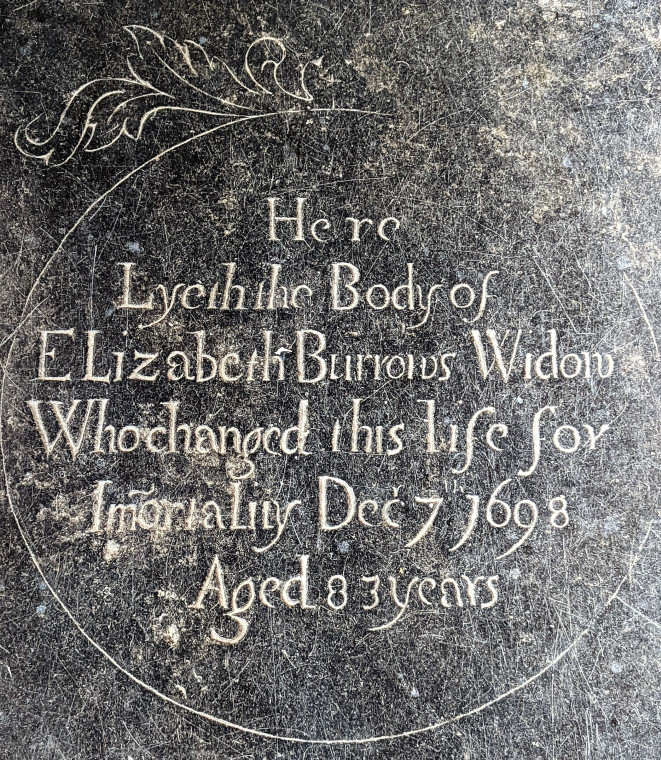 Here
Lyeth the Body of
ELizabeth Burrows Widow
Who changed this life for
Im̃ortaLity Decr 7th 1698
Aged 83 years